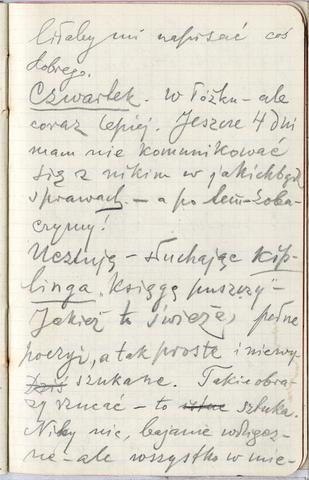 liłaby mi napisać coś
dobrego.
Czwartek. W łóżku – ale
coraz lepiej. Jeszcze 4 dni
mam nie komunikować
się z nikim w jakichbądź
sprawach. – a po tem – zoba-
czymy!
– słuchając Kip-
linga „Księgę puszczy" –
Jakież to świeże, pełne
poezyi, a tak proste i niewy-
szukane. Takie obra-
zy rzucać – to sztuka.
Niby nic, bajanie
– ale wszystko w nie-